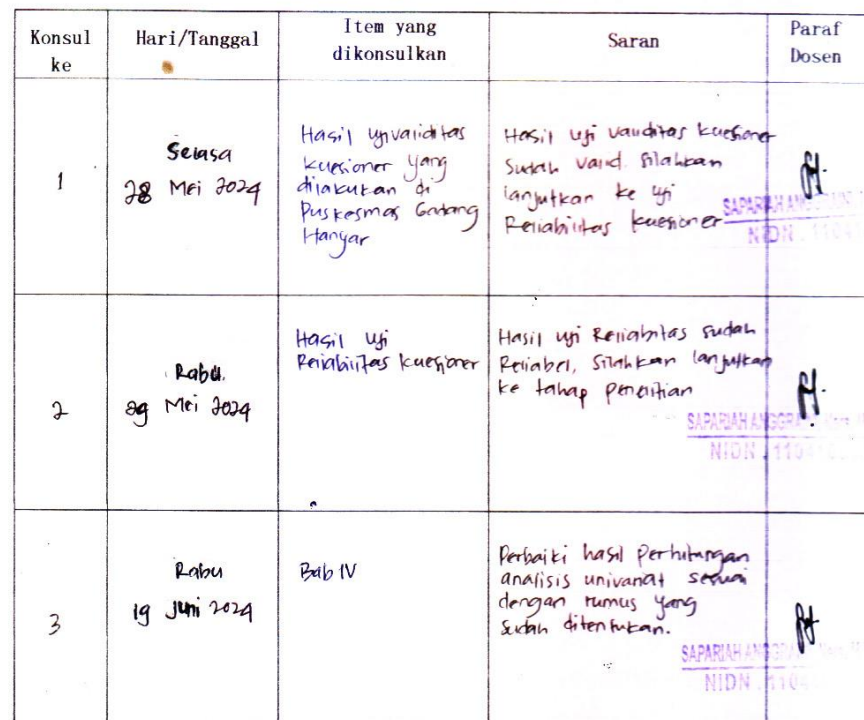 Konsul ke
Hari/Tanggal
Item yang dikonsulkan
Saran
Paraf Dosen
1
Selasa
28 Mei 2024
Hasil uji validitas
kuesioner yang
dilakukan di
Puskesmas Gadang
Hanyar
Hasil uji validitas kuesioner
Sudah valid. Silahkan
lanjutkan ke uji
Reliabilitas kuesioner
SAPARIAH ANGGRAINI
NIDN . 1104
2
Rabu
29 Mei 2024
Hasil uji
Reliabilitas kuesioner
Hasil uji Reliabilitas sudah
Reliabel, Silahkan lanjutkan
ke tahap penelitian
SAPARIAH ANGGRA
NIDN . 1104
3
Rabu
19 Juni 2024
Bab IV
Perbaiki hasil perhitungan
analisis univariat sesuai
dengan rumus yang
sudah ditentukan.
SAPARIAH ANGGRA
NIDN . 1104